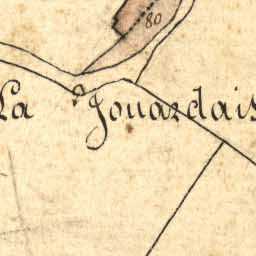 80
La Jouardais